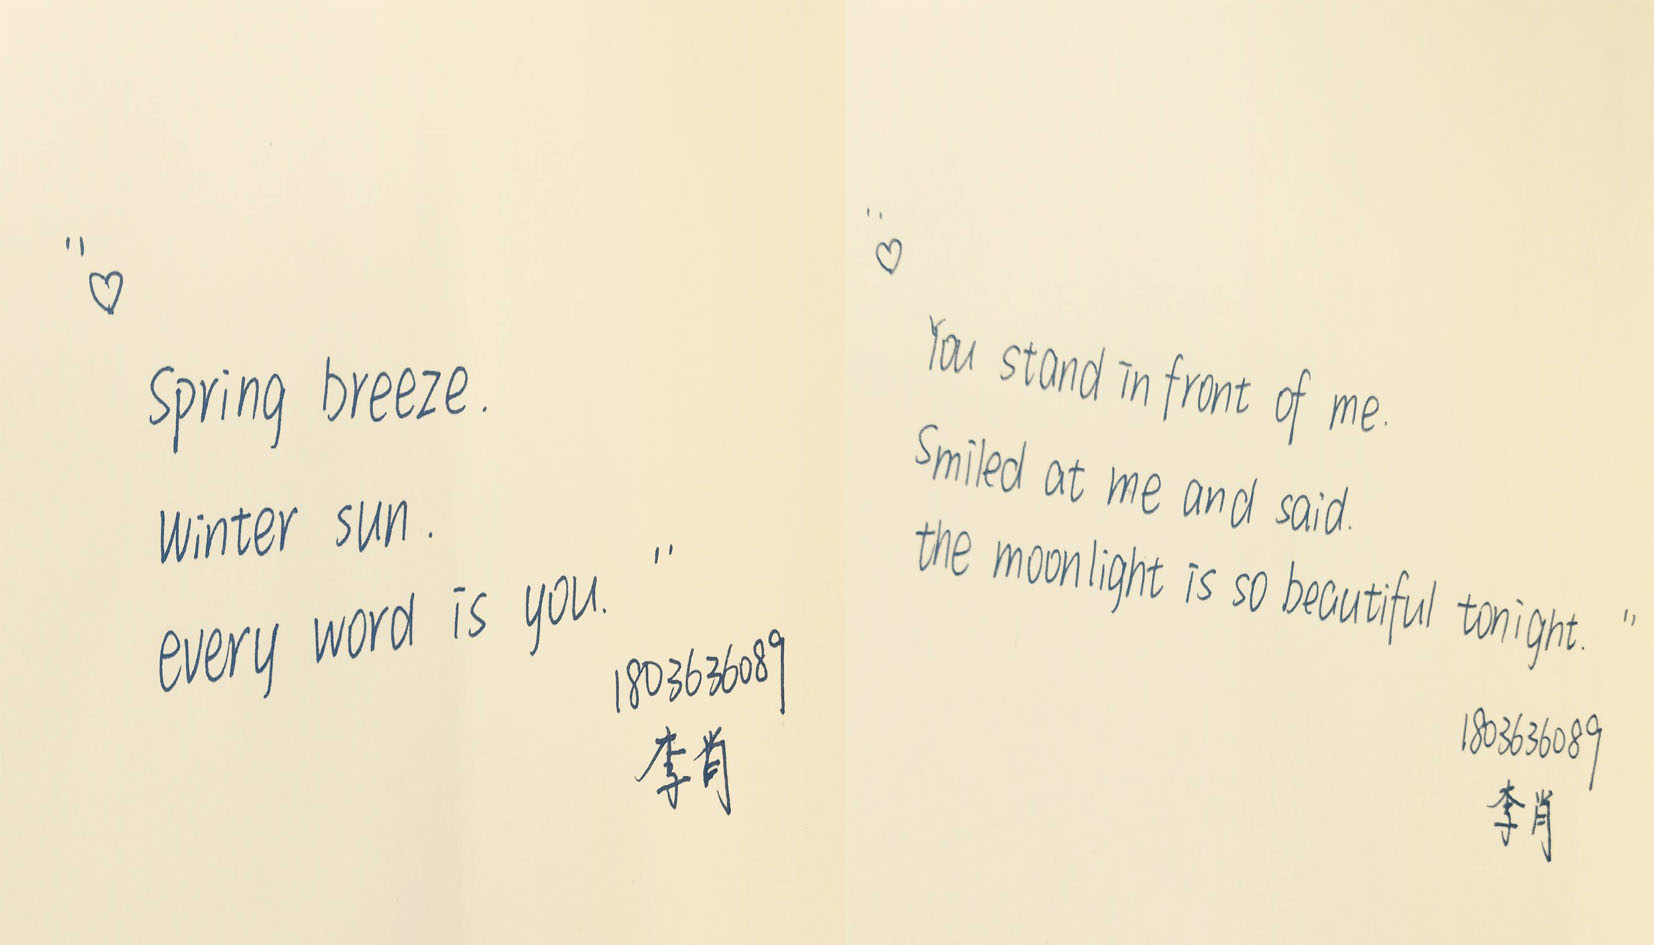 "♡
Spring breeze.
Winter sun.
every word is you."
1803636089
李肖
"♡
You stand in front of me.
Smiled at me and said.
the moonlight is so beautiful tonight."
1803636089
李肖